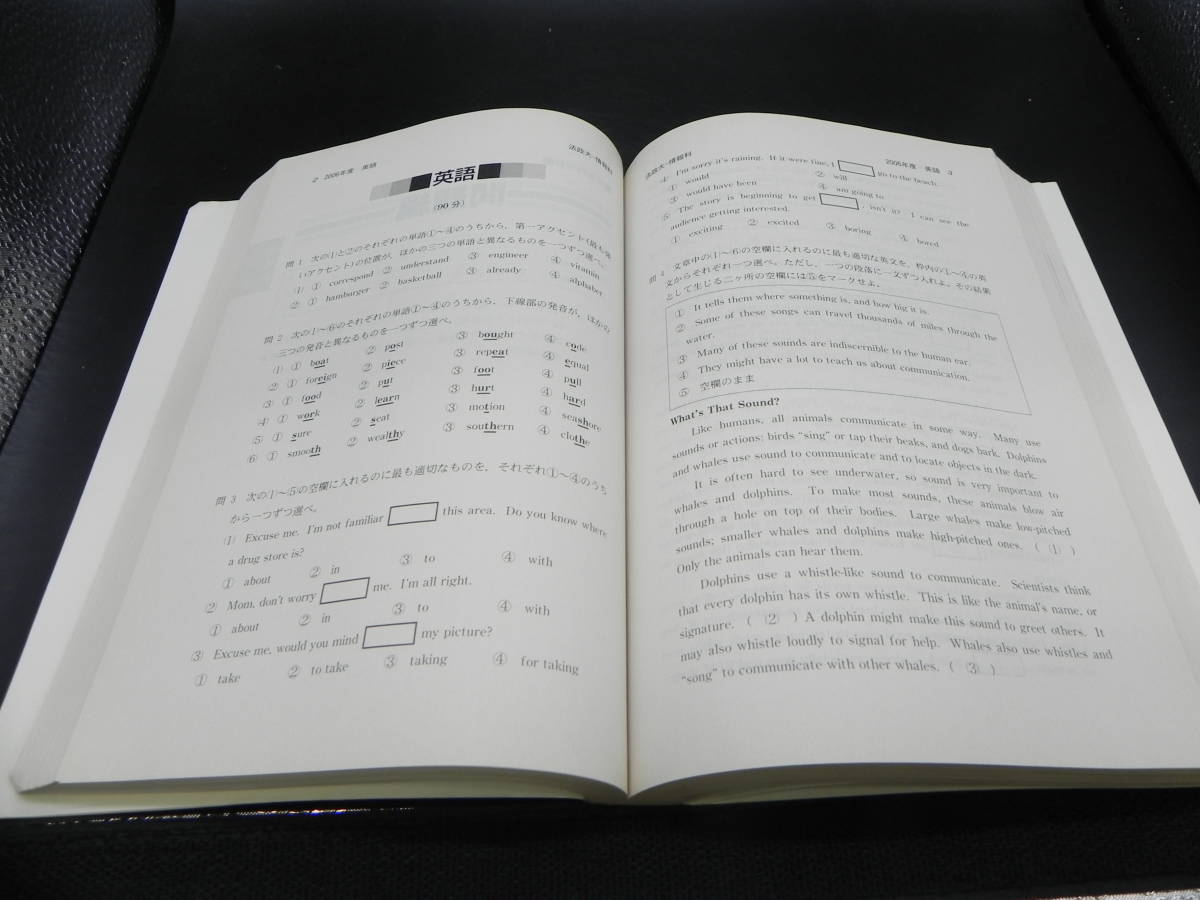 2 2006年度 英語
法政大-情報科
英語
(90分)
問1 次の(1)と(2)のそれぞれの単語①~④のうちから，第一アクセント(最も強
いアクセント)の位置が，ほかの三つの単語と異なるものを一つずつ選べ。
(1) ① correspond ② understand ③ engineer ④ vitamin
(2) ① hamburger ② basketball ③ already ④ alphabet
問2 次の(1)~(6)のそれぞれの単語①~④のうちから，下線部の発音が，ほかの
三つの発音と異なるものを一つずつ選べ。
(1) ① boat ② post ③ bought ④ code
(2) ① foreign ② piece ③ repeat ④ equal
(3) ① food ② put ③ foot ④ pull
(4) ① work ② learn ③ hurt ④ hard
(5) ① sure ② seat ③ motion ④ seashore
(6) ① smooth ② wealthy ③ southern ④ clothe
問3 次の(1)~(5)の空欄に入れるのに最も適切なものを，それぞれ①~④のうち
から一つずつ選べ。
(1) Excuse me. I'm not familiar this area. Do you know where
a drug store is?
① about ② in ③ to ④ with
(2) Mom, don't worry me. I'm all right.
① about ② in ③ to ④ with
(3) Excuse me, would you mind my picture?
① take ② to take ③ taking ④ for taking
法政大-情報科
2006年度 英語 3
(4) I'm sorry it's raining. If it were fine, I go to the beach.
① would ② will
③ would have been ④ am going to
(5) The story is beginning to get , isn't it? I can see the
audience getting interested.
① exciting ② excited ③ boring ④ bored
問4 文章中の(1)~(6)の空欄に入れるのに最も適切な英文を，枠内の①~④の英
文からそれぞれ一つ選べ。ただし，一つの段落に一文ずつ入れよ。その結果
として生じる二ヶ所の空欄には⑤をマークせよ。
① It tells them where something is, and how big it is.
② Some of these songs can travel thousands of miles through the
water.
③ Many of these sounds are indiscernible to the human ear.
④ They might have a lot to teach us about communication.
⑤ 空欄のまま
What's That Sound?
Like humans, all animals communicate in some way. Many use
sounds or actions: birds "sing" or tap their beaks, and dogs bark. Dolphins
and whales use sound to communicate and to locate objects in the dark.
It is often hard to see underwater, so sound is very important to
whales and dolphins. To make most sounds, these animals blow air
through a hole on top of their bodies. Large whales make low-pitched
sounds; smaller whales and dolphins make high-pitched ones. ( (1) )
Only the animals can hear them.
Dolphins use a whistle-like sound to communicate. Scientists think
that every dolphin has its own whistle. This is like the animal's name, or
signature. ( (2) ) A dolphin might make this sound to greet others. It
may also whistle loudly to signal for help. Whales also use whistles and
"song" to communicate with other whales. ( (3) )